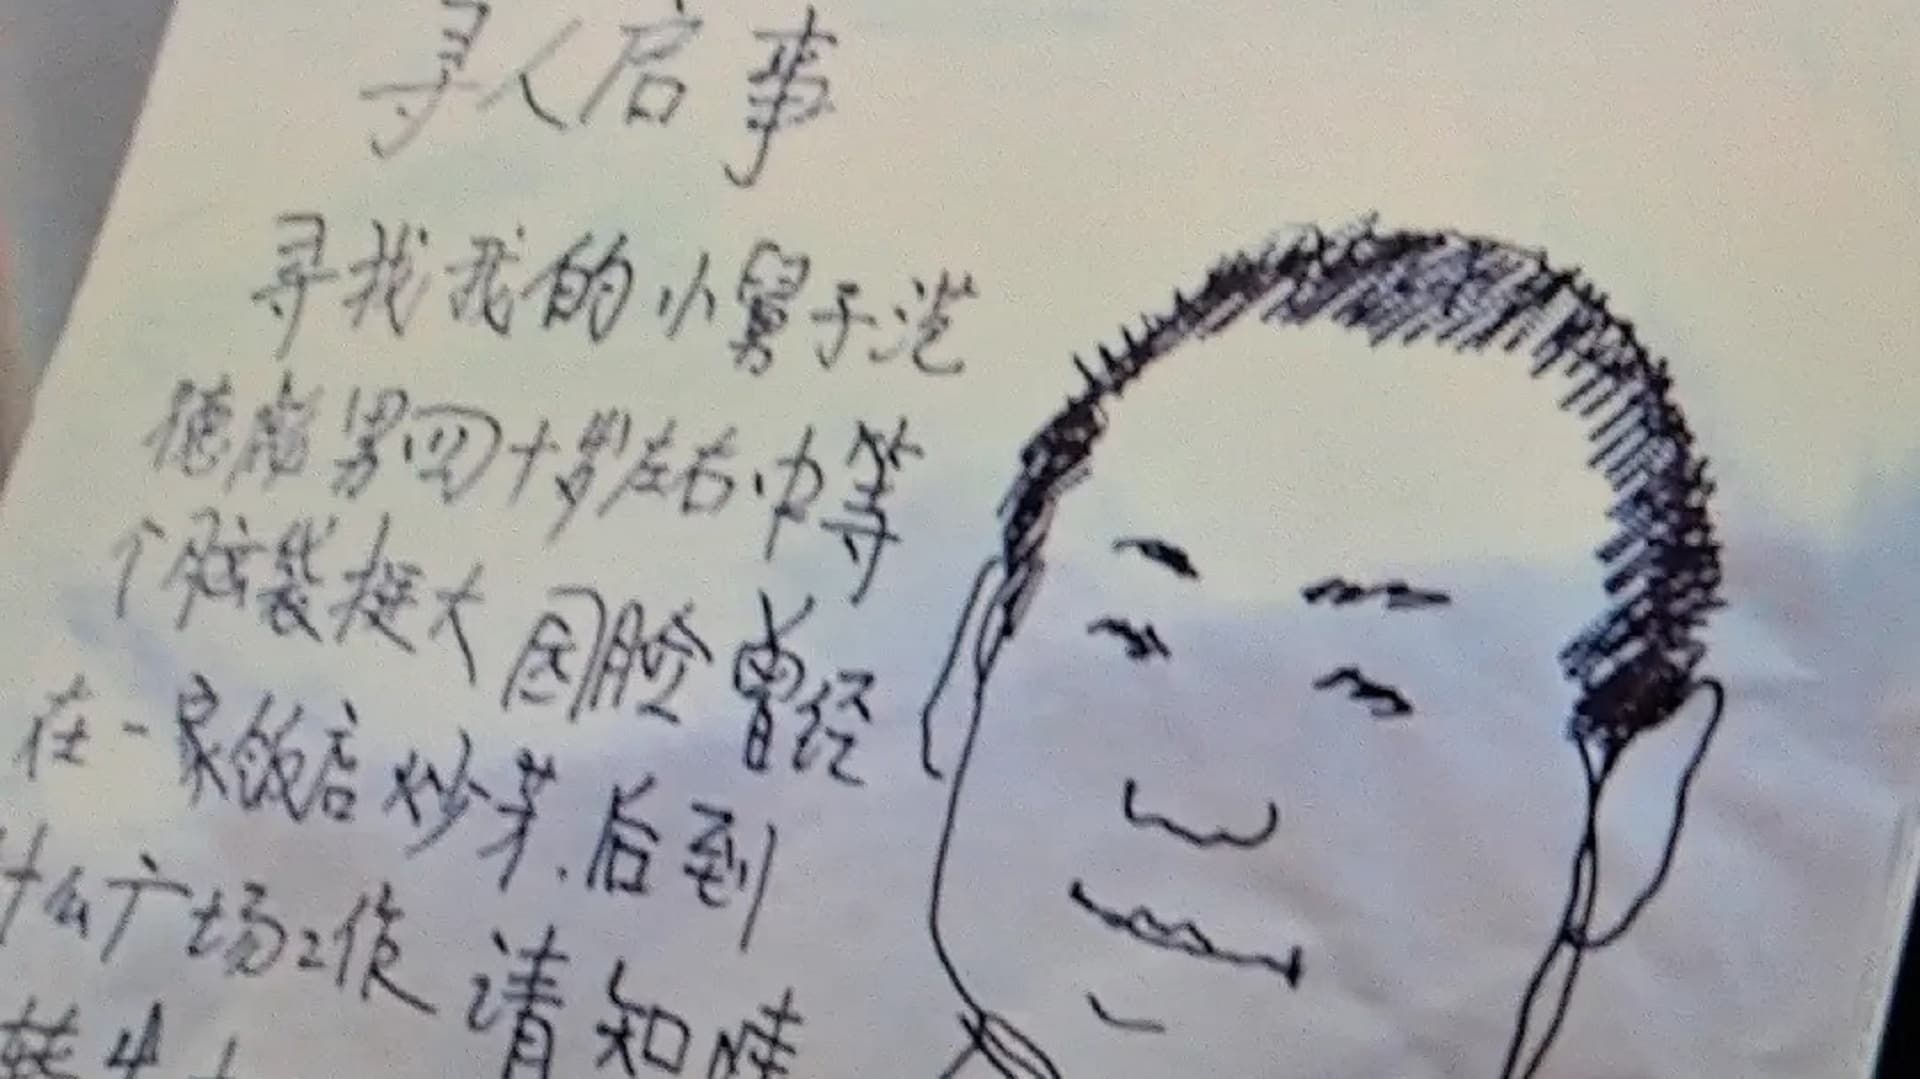 寻人启事
寻找我的小舅子范
德彪男四十岁左右中等
个脑袋挺大圆脸曾经
在一家饭店炒菜.后到
什么广场工作请知情